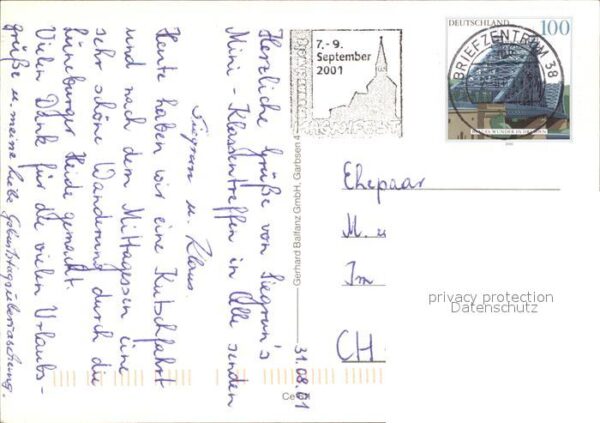 Herzliche Grüße von Siegrun's
Mini-Klassentreffen in Celle senden
Siegrun u. Klaus.
Heute haben wir eine Kutschfahrt
und nach dem Mittagessen eine
sehr schöne Wanderung durch die
Lüneburger Heide gemacht.
Vielen Dank für die vielen Urlaubs-
grüße u. meine liebe Geburtstagsüberraschung.
31.08.01
Gerhard Balfanz GmbH, Garbsen 4
7.-9.
September
2001
DEUTSCHLAND 100
BRIEFZENTRUM 38
BLAUES WUNDER IN DRESDEN
Ehepaar
M. u
Im
CH
privacy protection
Datenschutz